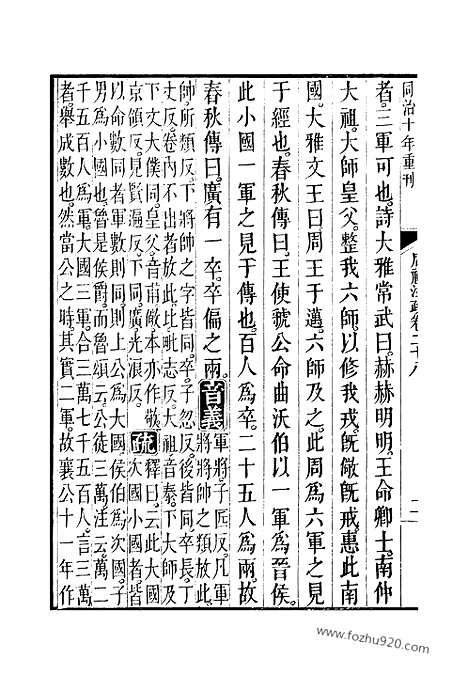 同治十年重刊
周禮注疏卷二十八
二
者。三軍可也。詩大雅常武曰。赫赫明明。王命卿士。南仲
大祖。大師皇父。整我六師。以修我戎。既儆既戒。惠此南
國。大雅文王曰。周王于邁。六師及之。此周爲六軍之見
于經也。春秋傳曰。王使虢公命曲沃伯以一軍爲晉侯。
此小國一軍之見于傳也。百人爲卒。二十五人爲兩。故
春秋傳曰。廣有一卒。卒偏之兩。音義
軍將子匠反。凡軍
將將帥之類放此
帥所類反。下將帥之字皆同。卒子忽反。後皆同。卒長丁
丈反。卷內不出者放此。比毗志反。大祖音泰。下大師及
下文大僕同。皇父音甫。儆本亦作敬
京領反。見賢遍反。下同。廣光浪反。
疏
釋曰。云此大國
次國小國者。皆
以命數同者。軍數則同。則上公爲大國。侯伯爲次國。子
男爲小國也。魯是侯爵。而魯頌云。公徒三萬。注云。萬二
千五百人爲軍。大國三軍。合三萬七千五百人。言三萬
者。舉成數也。然當公之時。其實二軍。故襄公十一年作
www.fozhu920.com